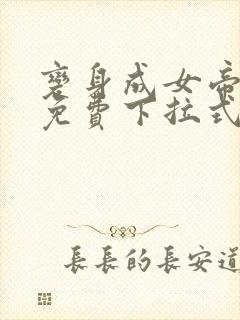 變身成女帝
免費下拉式
長長的長安道